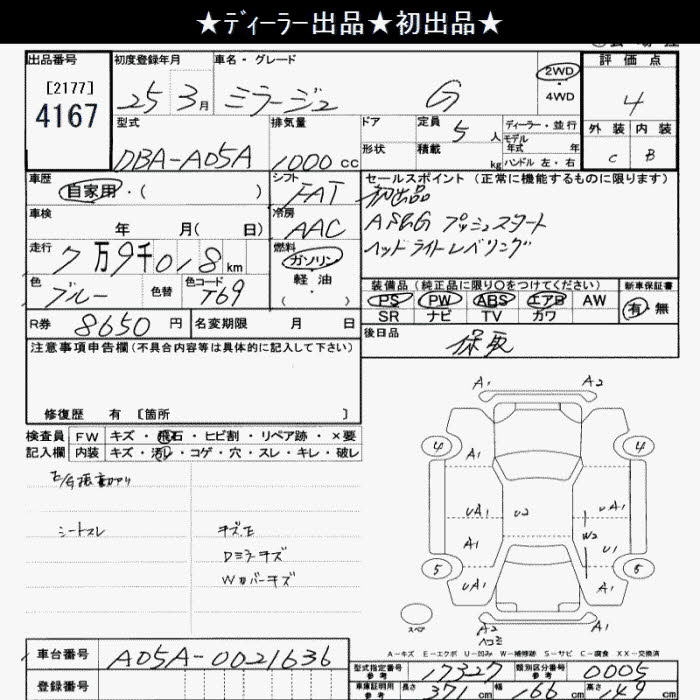 ★ディーラー出品★初出品★
出品番号 初度登録年月 車名・グレード 評価点
[2177]
4167
25 3月 ミラージュ G 2WD・4WD 4
型式 排気量 ドア 定員 5人 ディーラー・並行 外装 内装
DBA-A05A 1000cc 形状 積載 kg モデル年式 年 ハンドル 左・右 C B
車歴 シフト セールスポイント(正常に機能するものに限ります)
自家用・( ) FAT 初出品
車検 冷房
年 月( 日) AAC AS&G プッシュスタート
走行 燃料
7万9千018km ガソリン・軽油・( ) ヘッドライトレベリング
色 ブルー 色替 色コード T69
装備品(純正品に限り○をつけてください) 新車保証書
PS PW ABS エアB AW 有・無
SR ナビ TV カワ
R券 8650円 名変期限 月 日
後日品 保取
注意事項申告欄(不具合内容等は具体的に記入して下さい)
修復歴 有 [箇所 ]
検査員 FW キズ・飛石・ヒビ割・リペア跡・×要
記入欄 内装 キズ・汚れ・コゲ・穴・スレ・キレ・破レ
E/G振動アリ
シートスレ キズE
Dミラーキズ
Wカバーキズ
A1 A2
4 A1 4
UA1 U2 UA1
W2
A1 U1
5 UA1 A1 5
スペア A2 A1
ヘコミ
A-キズ E-エクボ U-凹み W-補修跡 S-サビ C-腐食 XX-交換済
車台番号 A05A-0021636
型式指定番号 参考 17327 類別区分番号 参考 0005
登録番号
車庫証明用 参考 長さ 371cm 幅 166cm 高さ 149cm